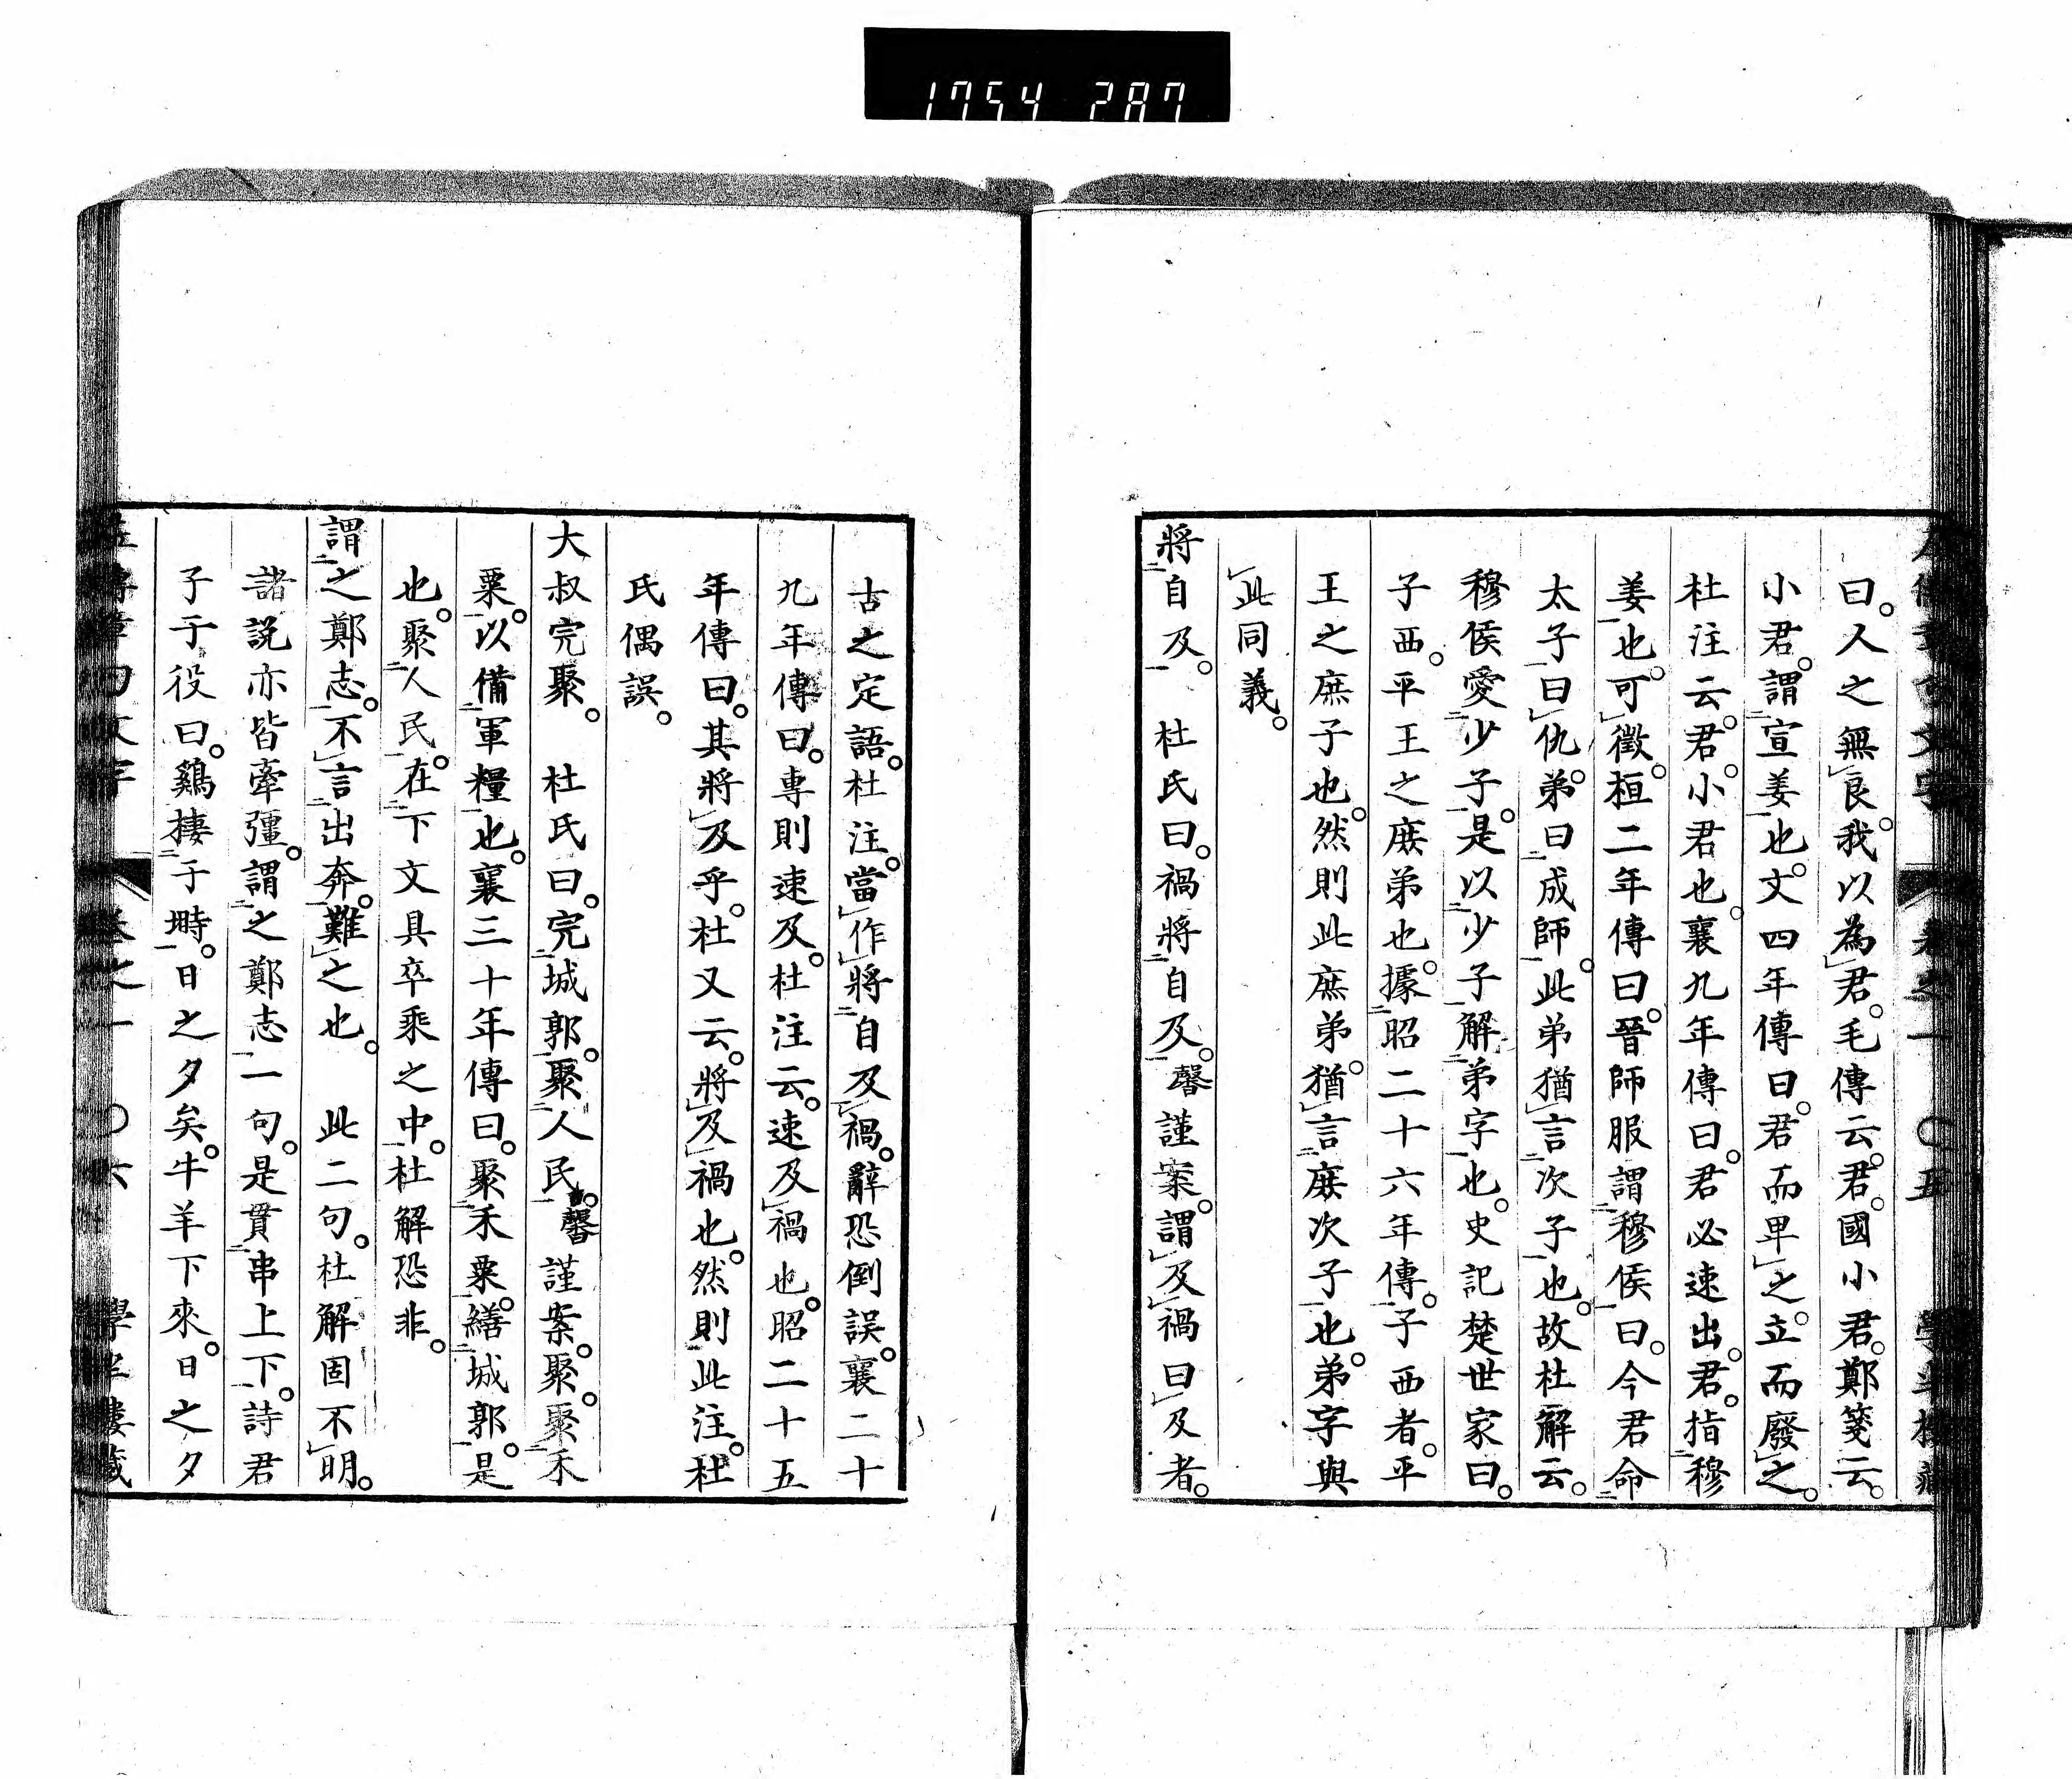 1754 287
曰。人之無良。我以為君。毛傳云。君。國小君。鄭箋云。
小君。謂宣姜也。文四年傳曰。君而卑之。立而廢之。
杜注云。君。小君也。襄九年傳曰。君必速出。君。指穆
姜也。可徵。桓二年傳曰。晉師服謂穆侯曰。今君命
太子曰仇。弟曰成師。此弟猶言次子也。故杜解云。
穆侯愛少子。是以少子解弟字也。史記楚世家曰。
子西。平王之庶弟也。據昭二十六年傳。子西者。平
王之庶子也。然則此庶弟。猶言庶次子也。弟字與
此同義。
將自及。 杜氏曰。禍將自及。馨謹案。謂及禍曰及者。
古之定語。杜注。當作將自及禍。辭恐倒誤。襄二十
九年傳曰。專則速及。杜注云。速及禍也。昭二十五
年傳曰。其將及乎。杜又云。將及禍也。然則此注。杜
氏偶誤。
大叔完聚。 杜氏曰。完城郭。聚人民。馨謹案。聚。聚禾
粟。以備軍糧也。襄三十年傳曰。聚禾粟。繕城郭。是
也。聚人民。在下文具卒乘之中。杜解恐非。
謂之鄭志。不言出奔。難之也。 此二句。杜解固不明。
諸說亦皆牽彊。謂之鄭志一句。是貫串上下。詩君
子于役曰。鷄棲于塒。日之夕矣。牛羊下來。日之夕
卷之一 〇六 學半樓藏